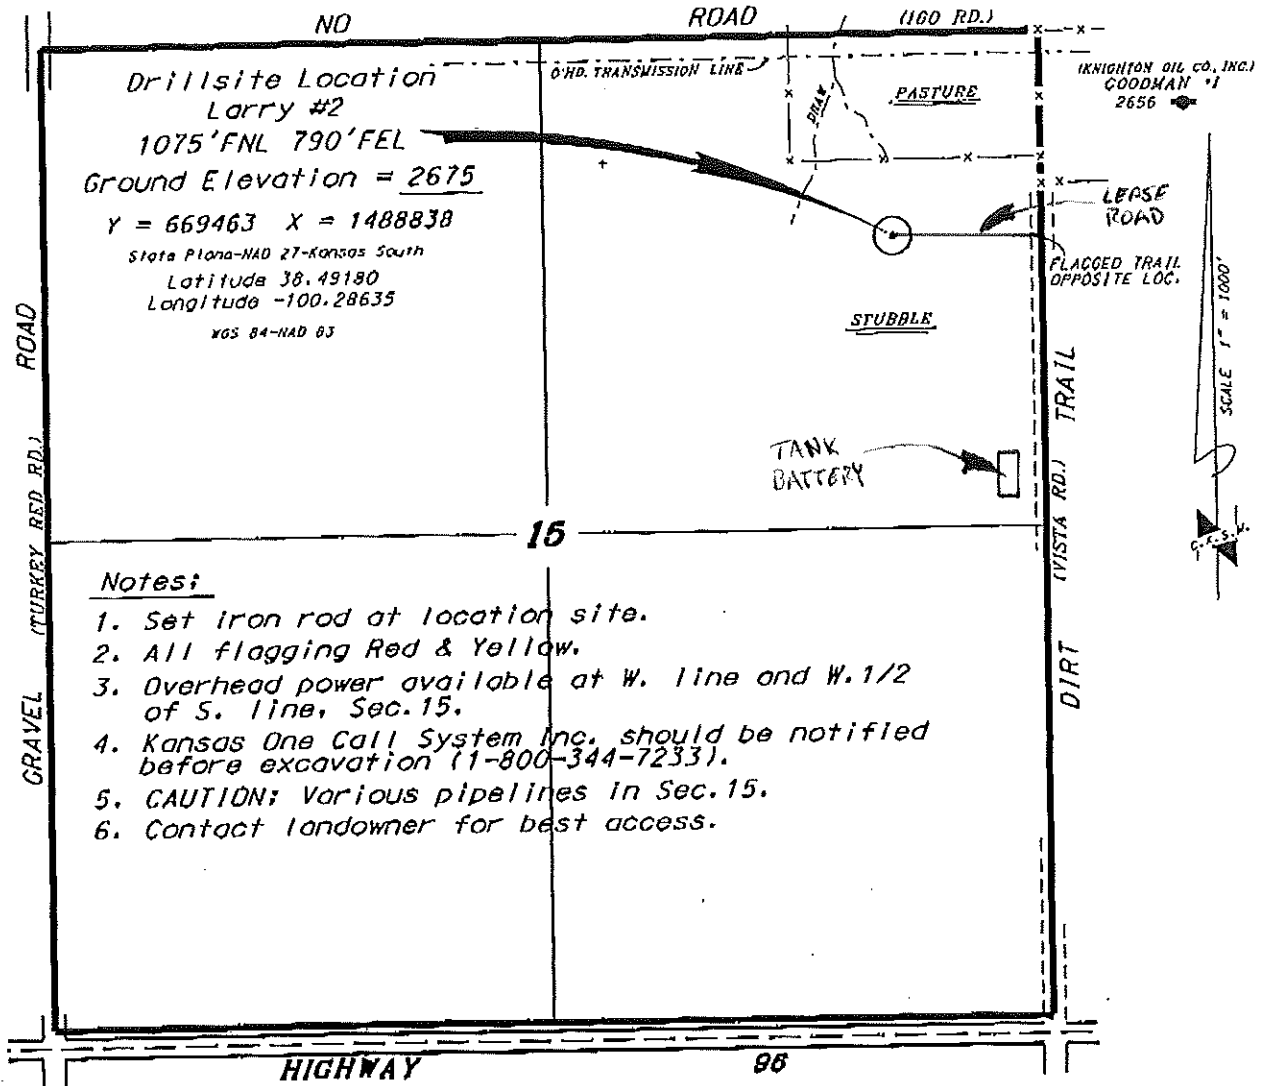 NO ROAD (160 RD.)
Drillsite Location
Larry #2
1075'FNL 790'FEL
Ground Elevation = 2675
Y = 669463 X = 1488838
State Plane-NAD 27-Kansas South
Latitude 38.49180
Longitude -100.28635
WGS 84-NAD 83
O'HD. TRANSMISSION LINE
DRAW
PASTURE
(KNIGHTON OIL CO., INC.)
GOODMAN #1
2656
LEASE
ROAD
FLAGGED TRAIL
OPPOSITE LOC.
STUBBLE
SCALE 1" = 1000'
TANK
BATTERY
GRAVEL (TURKEY RED RD.) ROAD
DIRT (VISTA RD.) TRAIL
15
Notes:
1. Set iron rod at location site.
2. All flagging Red & Yellow.
3. Overhead power available at W. line and W.1/2
of S. line, Sec.15.
4. Kansas One Call System Inc. should be notified
before excavation (1-800-344-7233).
5. CAUTION: Various pipelines in Sec.15.
6. Contact landowner for best access.
HIGHWAY 96